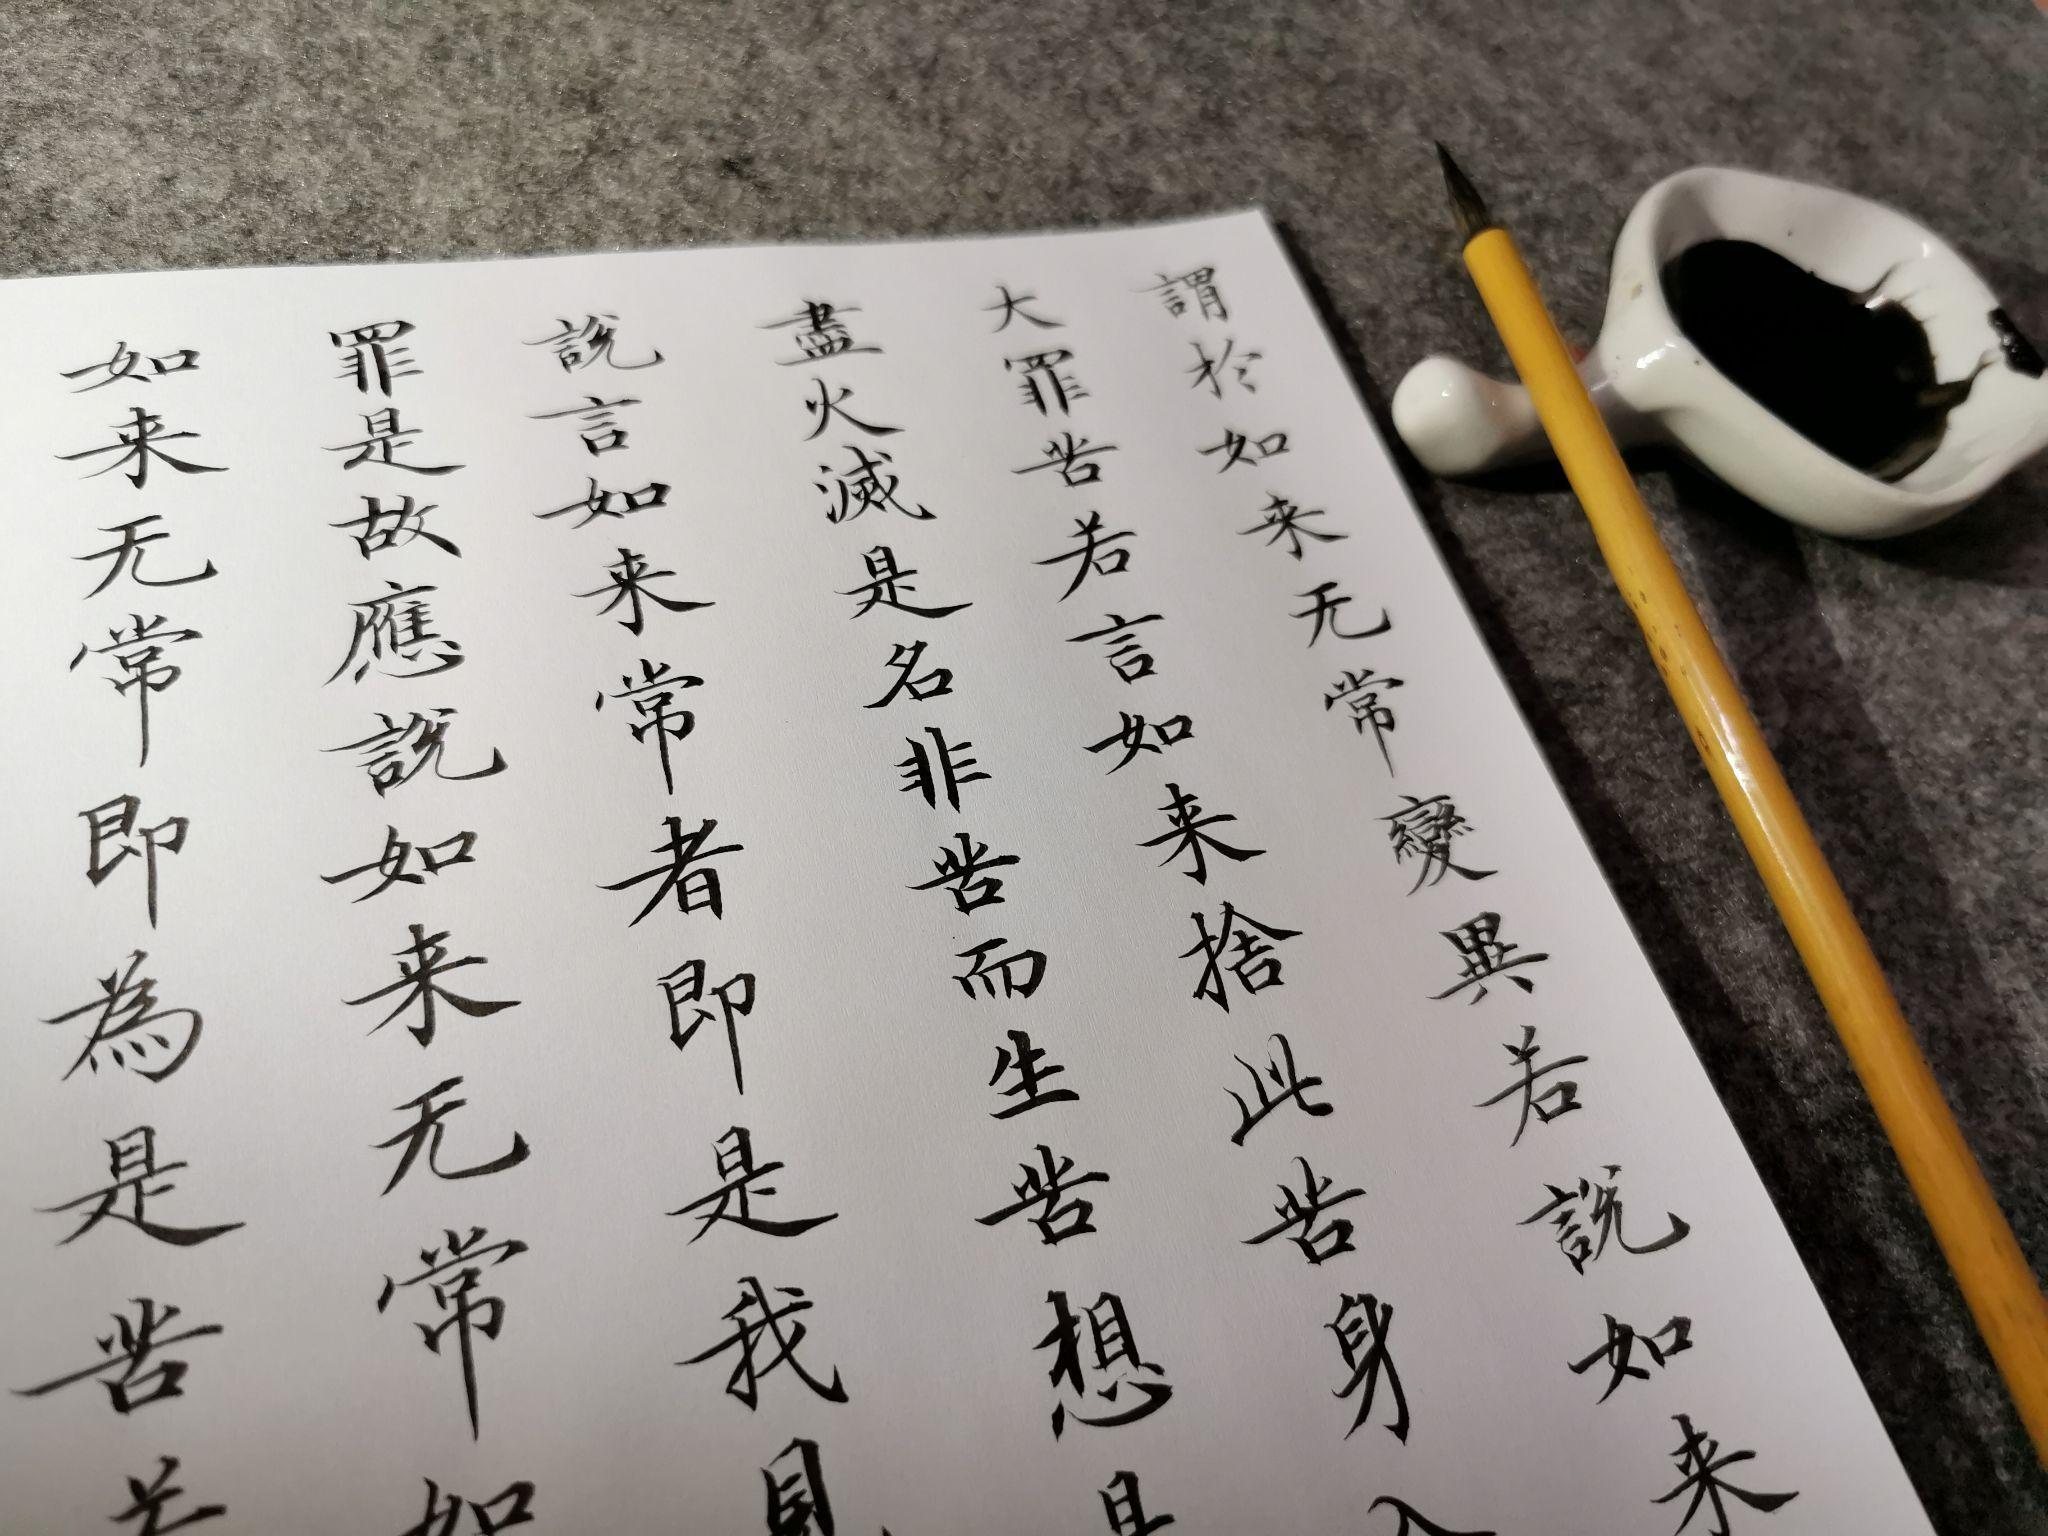 謂於如来无常變異若説如来
大罪苦若言如来捨此苦身入
盡火滅是名非苦而生苦想是
説言如来常者即是我見
罪是故應説如来无常如
如来无常即為是苦若